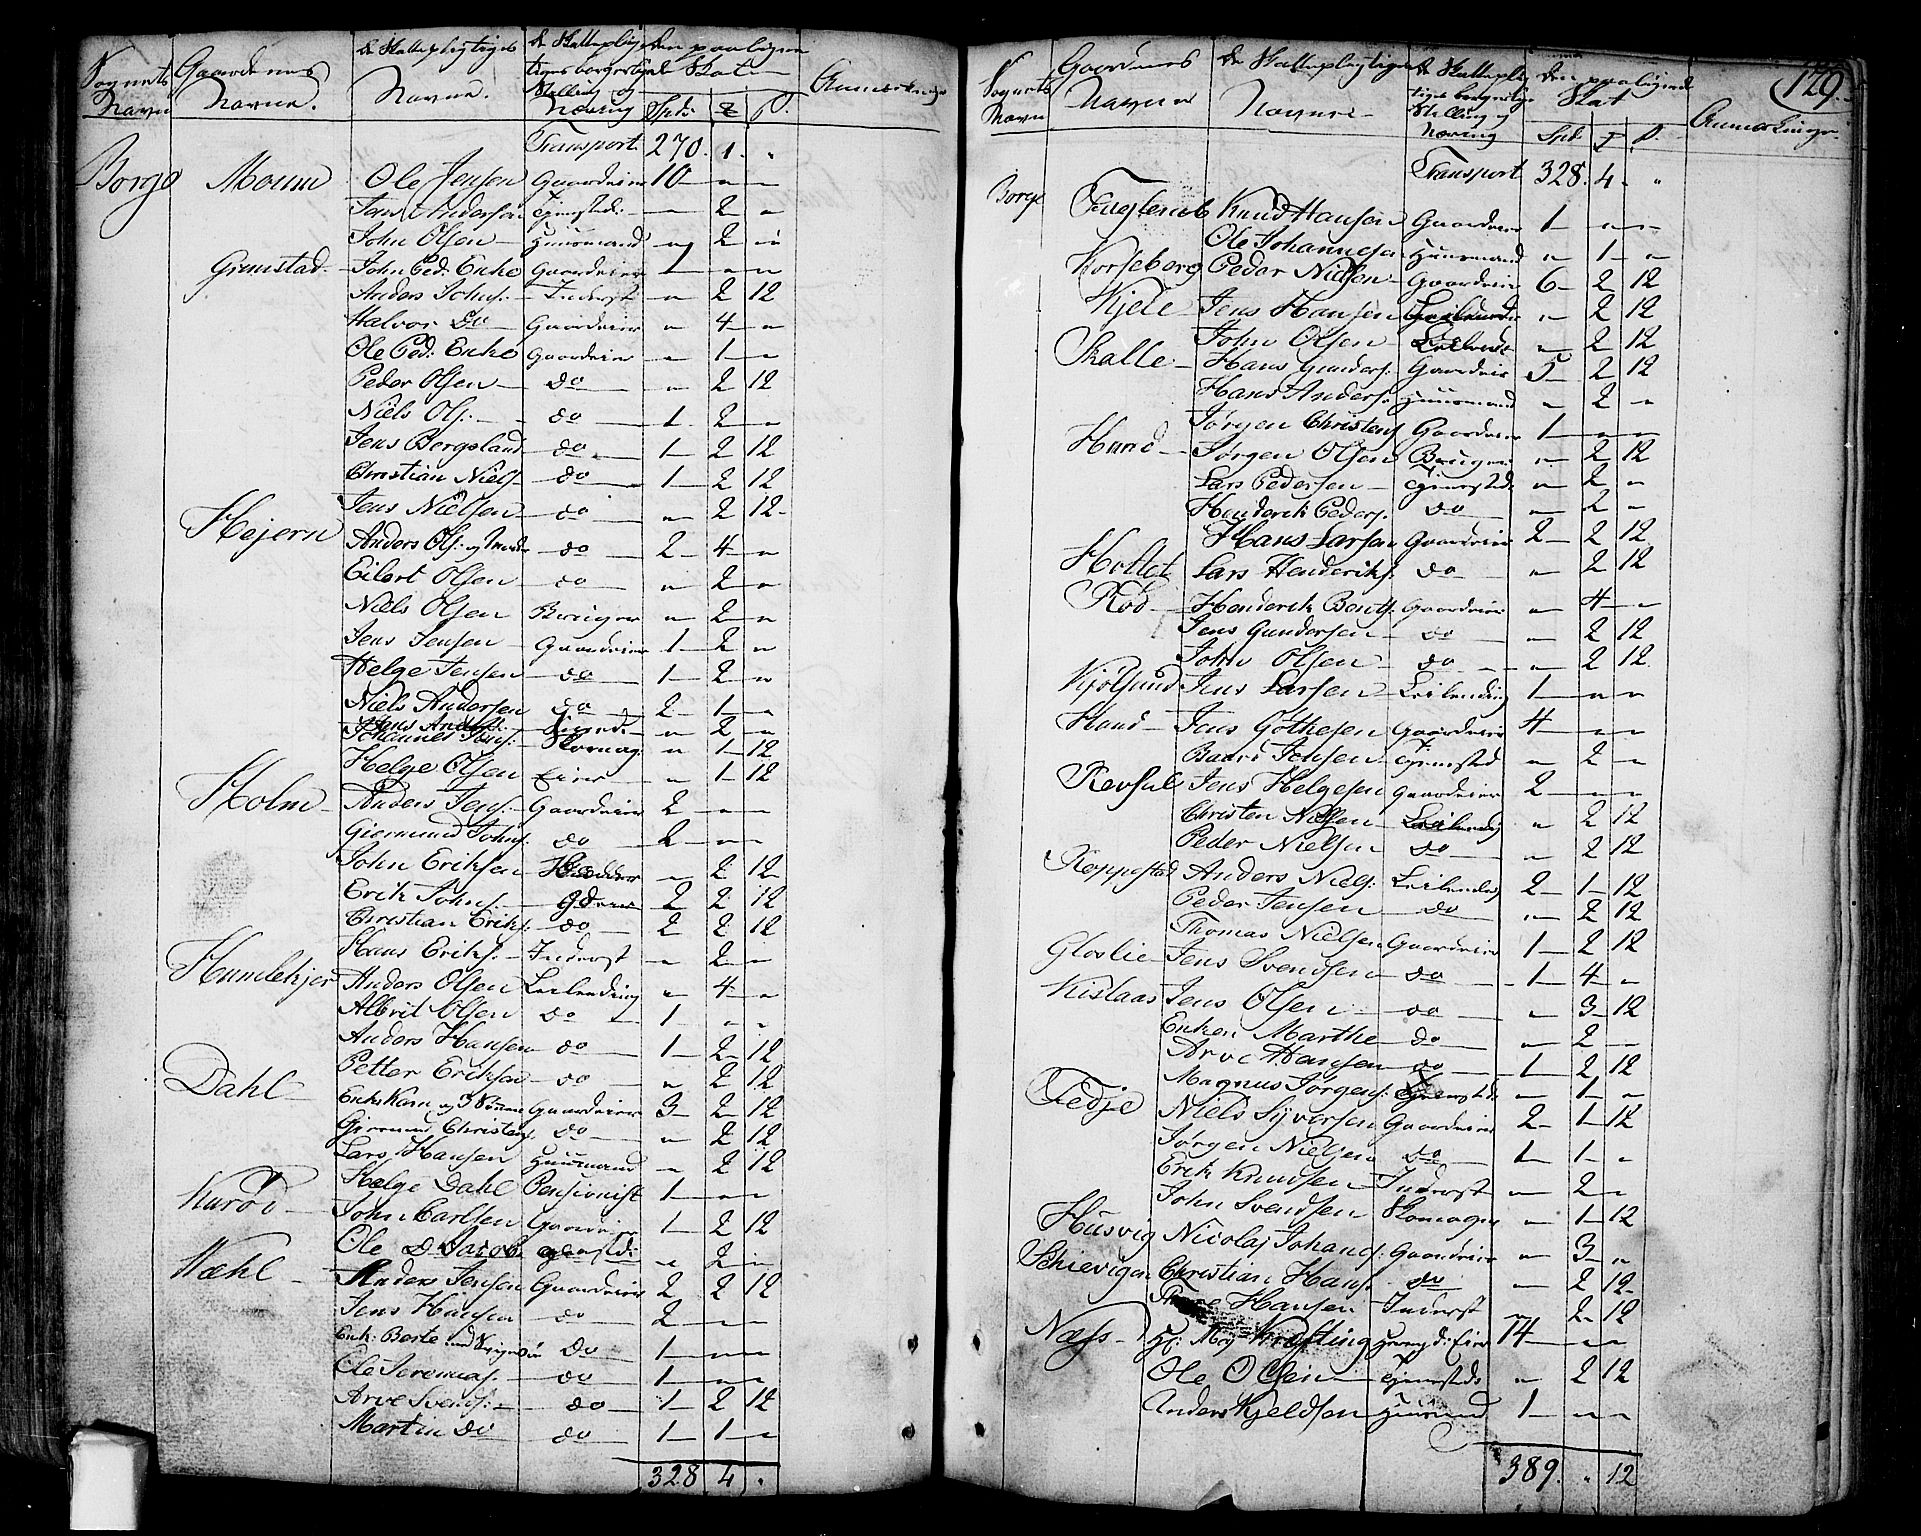 Sognets Navn | Gaardenes Navne. | de Skattepligtiges Navne. | de Skattepligtiges borgerlige Stilling og Næring | den paalignede Skat Spd. | | Anmærkninger
Transport. 270. 1. "
Borge Moum Ole Jensen Gaardeier 10 - " - "
Andersen Tjenested: " 2 "
John Olsen Huusmand " 2 "
Grimstad John Ped: Enke Gaardeier 1 " "
Anders Johns: Inderst " 2 12
Halvor Do Gaardeier " 4 "
Ole Ped: Enke Gaardeier " 1 "
Peder Olsen do " 2 12
Niels Ols: do 1 2 "
Jens Bergsland do 1 2 12
Christian Niels: do 1 2 12
Jens Nielsen do " 2 12
Hejern Anders Ols: og do 2 4 "
Eilert Olsen do " 2 "
Niels Olsen Bruger " 2 "
Jens Jensen Gaardeier 1 2 "
Helge Jensen do 1 2 "
Niels Andersen do 2 1 "
Jens Anders: " 2 "
Johannes Jens: Skomag: " 1 12
Helge Olsen Eier " 1 12
Holm Anders Jens: Gaardeier 2 " "
Giermund Johns: do 2 " "
John Eriksen " 2 12
Erik Johns: Gdeier 2 2 12
Christian Eriks: do 2 2 12
Hans Eriks: Inderst " 2 "
Humlekjer Anders Olsen Leilending " 4 "
Albrit Olsen do 1 " "
Anders Hansen do 1 2 12
Petter Eriksen do " 2 12
Dahl Enke Karn og 3 Sønner Gaardeier 3 2 12
Giermund Christens: do " 2 12
Lars Hansen Huusmand " 2 12
Helge Dahl Pensionist 1 " "
Kurød John Carlsen Gaardeier 1 2 12
Ole D. Jacob: Tjenested: " 2 "
Wæhl Anders Jensen Gaardeier 2 2 12
Jens Hansen do 2 " "
Enk: Berte do 1 " "
Ole Jeremias: do 1 " "
Arve Svends: do 1 2 12
Martin Do do 1 1 "
328 4 "
129.
Sognets Navn | Gaardenes Navne | de Skattepligtiges Navne | de Skattepligtiges borgerlige Stilling og Næring | den paalignede Skat Spd. | | Anmærkninger
Transport 328. 4. "
Borge Fuglevik Knud Hansen Gaardeier 1 " "
Ole Johannesen Huusmand " 1 "
Torseberg Peder Nielsen Gaardeier 6 2 12
Kjele Jens Hansen Leilend: " 2 12
John Olsen Leilend: " 2 12
Skalle Hans Gunders: Gaardeier 5 2 12
Hans Anders: Huusmand " 2 "
Jørgen Christens: Gaardeier 1 " "
Hunn Jørgen Olsen Bruger " 2 12
Lars Pedersen Tjenested: " 2 "
Henderik Peders: do " 2 "
Hans Larsen Gaardeier 2 2 12
Holtet Lars Henderiks: do " 2 12
Rød Henderik Bents: Gaardeier " 4 "
Jens Gundersen do " 2 12
John Olsen do " 2 12
Kjølsund Jens Larsen Leilending 1 " "
Haud Jens Gothesen Gaardeier 4 " "
Baard Jensen Tjenested " 2 "
Revhul Jens Helgesen Gaardeier 2 " "
Christen Nielsen Leilending " 2 12
Peder Nielsen do " 2 12
Roppestad Anders Niels: Leilending 2 1 12
Peder Jensen do " 2 12
Thomas Nielsen Gaardeier 1 2 12
Gloslie Jens Svendsen do 1 4 "
Kislaas Jens Olsen do " 3 12
Enken Marthe do " 2 "
Arve Hansen do 1 2 12
Magnus Jørgens: Tjenested: " 1 "
Fedje Niels Syversen Gaardeier 2 1 12
Jørgen Nielsen do 1 1 "
Erik Knudsen Inderst " 2 "
John Svendsen Skomager " 1 12
Husvig Nicolaj Johans: Gaardeier " 3 "
Schievigen Christian Hans: do " 2 12
Hansen Inderst " 2 12
Næss Hr: Maj: Kræfting Eier 14 " "
Ole Olsen Tjenested: " 2 12
Anders Kjeldsen Huusmand 1 " "
389. " 12